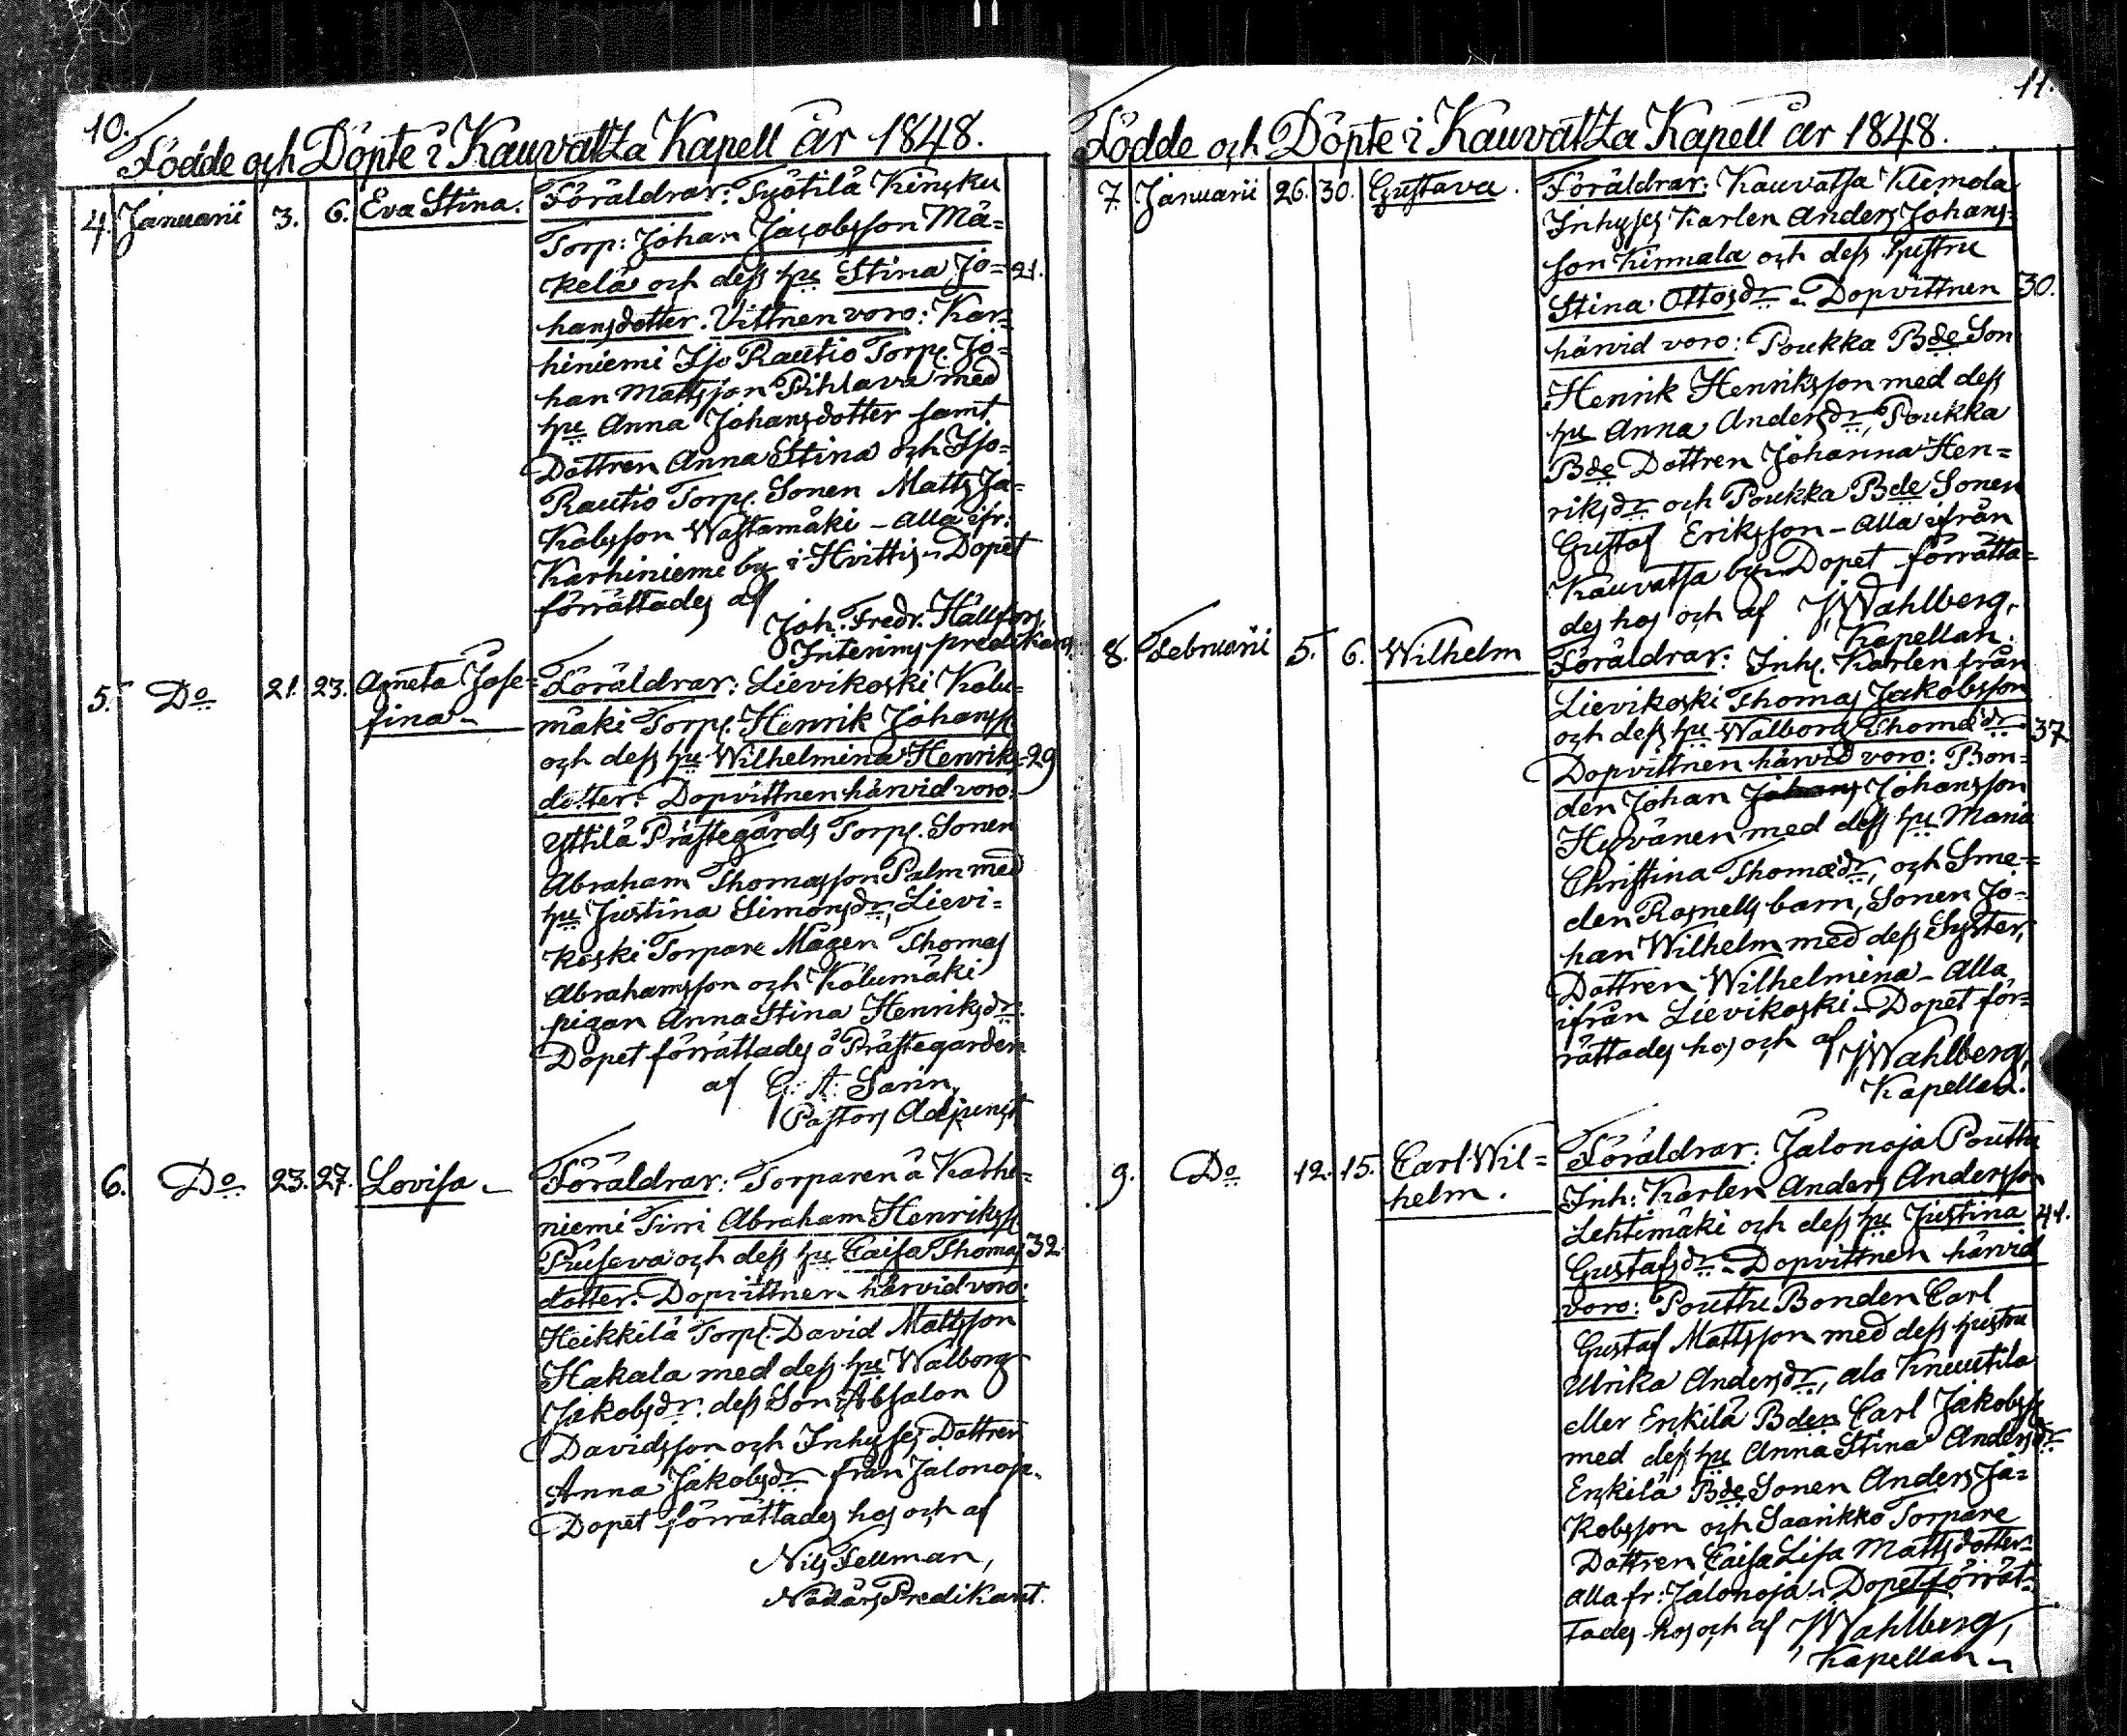 10.
Födde och Döpte i Kauvatza Kapell år 1848.
4. Januarii 3. 6. Eva Stina. Föräldrar: Työtilä Kinsku
Torp: Johan Jacobsson Mä=
kelä och dess hu Stina Jo= 21.
hansdotter. Vittnen voro: Kar=
hiniemi Iso Rautio Torp. Jo=
han Mattsson Pihlava med
hu Anna Johansdotter samt
Dottren Anna Stina och Iso=
Rautio Torp. Sonen Matts Ja=
kobsson Wastamäki – Alla ifr:
Karhiniemi by i Hvittis – Dopet
förrättades af
Joh: Fredr. Hällfors,
Interims predikant
5. Do 21. 23. Agneta Jose= Föräldrar: Lievikoski Kolu=
fina – mäki Torp. Henrik Johanss
och dess hu Wilhelmina Henriks= 29
dotter. Dopvittnen härvid voro:
Yttilä Prästegårds Torp. Sonen
Abraham Thomasson Palm med
hu Justina Simonsdr, Lievi=
koski Torpare Mågen Thomas
Abrahamsson och Kolumäki
pigan Anna Stina Henriksdr.
Dopet förrättades å Prästegården
af G. A. Sarin,
Pastors Adjunct
6. Do 23. 27. Lovisa – Föräldrar: Torparen å Karhi=
niemi Tiiri Abraham Henrikss
och dess hu Caisa Thomas 32.
dotter. Dopvittnen härvid voro:
Heikkilä Torp. David Mattsson
Hakala med dess hu Walborg
Jakobsdr: dess Son Absalon
Davidsson och Inhyses Dottren
Anna Jakobsdr från Jalonoja.
Dopet förrättades hos och af
Nils Fellman,
Nådårs Predikant.
11.
Födde och Döpte i Kauvatza Kapell år 1848.
7. Januarii 26. 30. Gustava. Föräldrar: Kauvatsa Klemola
Inhyses Karlen Anders Johans=
son Kinnala och dess hustru
Stina Ottosdr – Dopvittnen 30.
härvid voro: Poukka Bde Son
Henrik Henriksson med dess
hu Anna Andersdr, Poukka
Bde Dottren Johanna Hen=
riksdr och Poukka Bde Sonen
Gustaf Eriksson – Alla ifrån
Kauvatsa by – Dopet förrätta=
des hos och af J. Wahlberg,
Kapellan.
8. Februarii 5. 6. Wilhelm Föräldrar: Inh. Karlen från
Lievikoski Thomas Jakobsson
och dess hu Walborg Thomædr – 37
Dopvittnen härvid voro: Bon=
den Johan Johans Johansson
Hyvänen med dess hu Maria
Christina Thomædr, och Sme=
den Rosnells barn, Sonen Jo=
han Wilhelm med dess Syster,
Dottren Wilhelmina – Alla
ifrån Lievikoski – Dopet för=
rättades hos och af J. Wahlberg,
Kapellan.
9. Do 12. 15. Carl Wil= Föräldrar: Jalonoja Pouttu
helm. Inh: Karlen Anders Andersson
Lehtimäki och dess hu Justina 41.
Gustafsdr – Dopvittnen härvid
voro: Pouttu Bonden Carl
Gustaf Mattsson med dess hustru
Ulrika Andersdr, ala Knuutila
eller Enkilä Bden Carl Jakobss
med dess hu Anna Stina Andersdr
Enkilä Bde Sonen Anders Ja=
kobsson och Saarikko Torpare
Dottren Caisa Lisa Mattsdotter
alla fr: Jalonoja – Dopet förrät=
tades hos och af J. Wahlberg,
Kapellan –